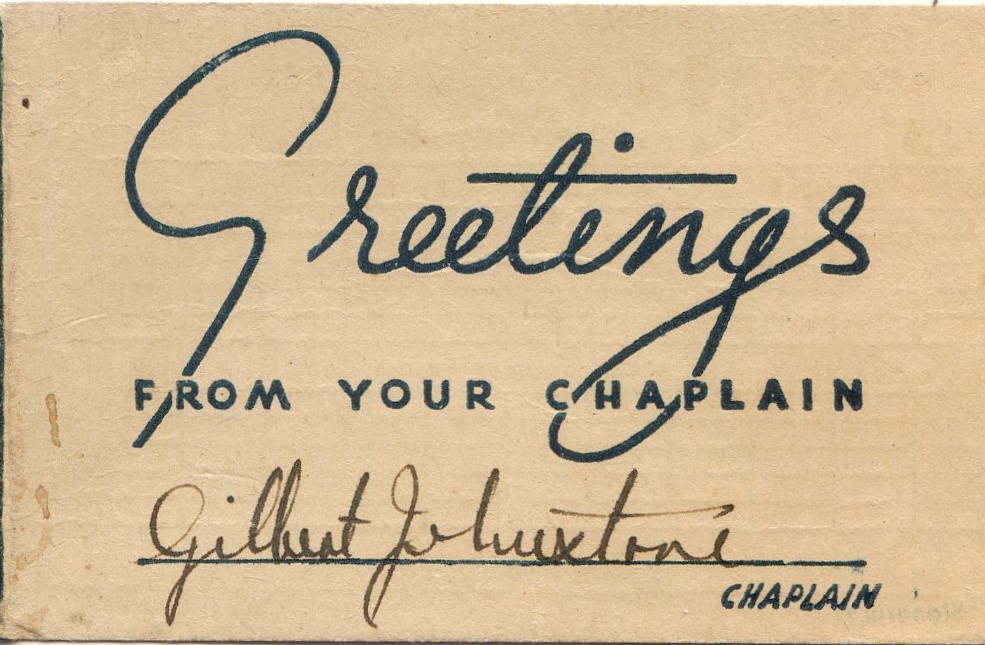 Greetings
FROM YOUR CHAPLAIN
Gilbert Johnstone
CHAPLAIN